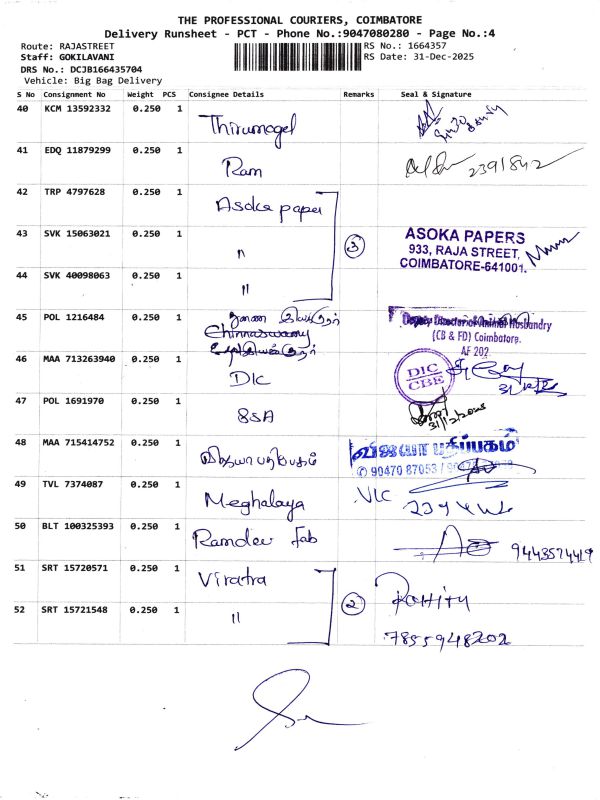 THE PROFESSIONAL COURIERS, COIMBATORE
Delivery Runsheet - PCT - Phone No.:9047080280 - Page No.:4
Route: RAJASTREET
RS No.: 1664357
Staff: GOKILAVANI
RS Date: 31-Dec-2025
DRS No.: DCJB166435704
Vehicle: Big Bag Delivery
S No Consignment No Weight PCS Consignee Details Remarks Seal & Signature
40 KCM 13592332 0.250 1 Thirumagal
41 EDQ 11879299 0.250 1 Ram 2391842
42 TRP 4797628 0.250 1 Asoka paper
43 SVK 15063021 0.250 1 " 3
ASOKA PAPERS
933, RAJA STREET,
COIMBATORE-641001.
44 SVK 40098063 0.250 1 "
45 POL 1216484 0.250 1
Chinnaswamy
Deputy Director of Animal Husbandry
(CB & FD) Coimbatore.
AF 202
46 MAA 713263940 0.250 1 DIC
DIC
CBE
47 POL 1691970 0.250 1 SSA
48 MAA 715414752 0.250 1 விஜயா பதிப்பகம்
விஜயா பதிப்பகம்
✆ 90470 87053 /
49 TVL 7374087 0.250 1 Meghalaya VLC
50 BLT 100325393 0.250 1 Ramdev fab 9443574419
51 SRT 15720571 0.250 1 Viratra 2 ROHITH
52 SRT 15721548 0.250 1 " 7855948202